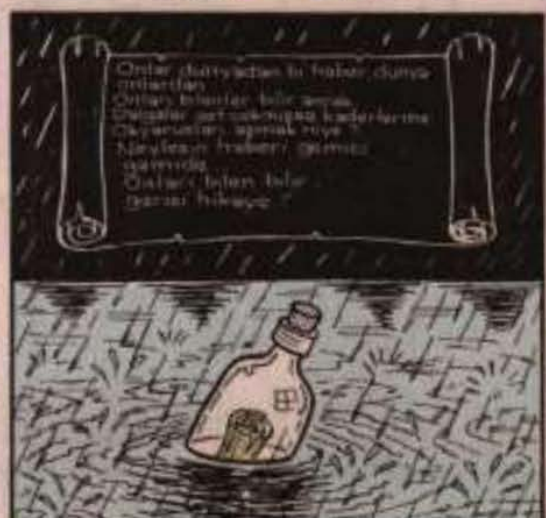 Onlar dünyadan bi haber, dünya
onlardan
Onları bilenler bilir ancak
Dalgalar set çekmişse kaderlerine
Okyanusları aşmak niye ?
Neylesin haberi gemici
gemide
Onları bilen bilir
gerisi hikaye